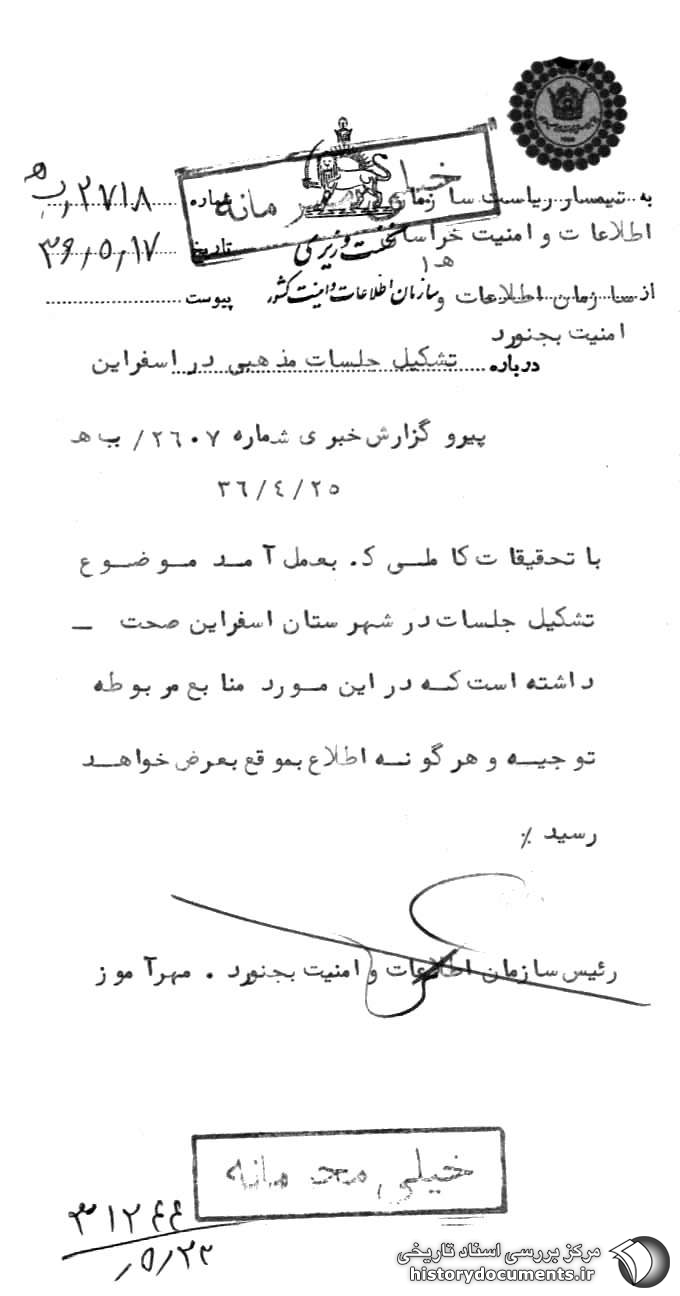 خیلی محرمانه
به تیمسار ریاست سازمان شماره ۲۷۱۸/ب ه
اطلاعات و امنیت خراسان تاریخ ۳۶/۵/۱۷
نخست وزیری
ه ۱
از سازمان اطلاعات و سازمان اطلاعات و امنیت کشور پیوست
امنیت بجنورد
درباره تشکیل جلسات مذهبی در اسفراین
پیرو گزارش خبری شماره ۲٦۰۷/ ب ه
۳٦/٤/۲٥
با تحقیقات کاملی که بعمل آمد موضوع
تشکیل جلسات در شهرستان اسفراین صحت –
داشته است که در این مورد منابع مربوطه
توجیه و هرگونه اطلاع بموقع بعرض خواهد
رسید ٪
رئیس سازمان اطلاعات و امنیت بجنورد . مهرآموز
خیلی محرمانه
۳۱۲۴۴
/۵/۲۲
مرکز بررسی اسناد تاریخی
historydocuments.ir